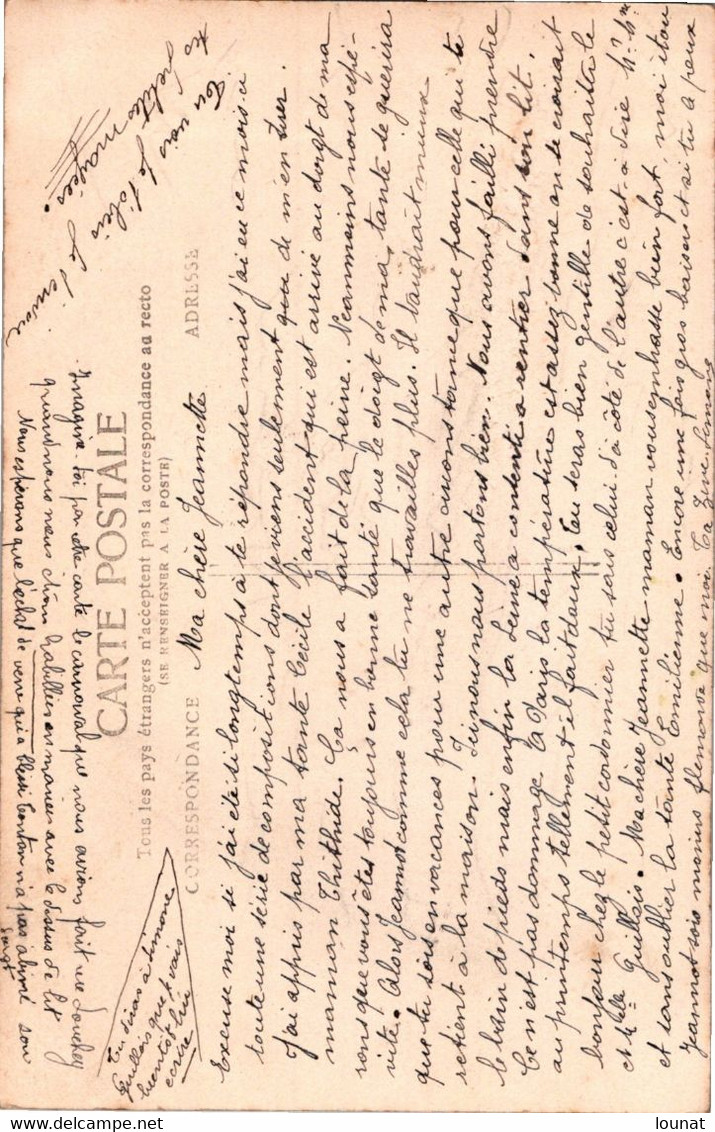 CARTE POSTALE
Tous les pays étrangers n'acceptent pas la correspondance au recto
(SE RENSEIGNER A LA POSTE)
CORRESPONDANCE
ADRESSE
Ma chère Jeannette
Excuse moi si j'ai été si longtemps à te répondre mais j'ai eu ce mois-ci
toute une série de compositions dont je viens seulement que de m'en tirer.
J'ai appris par ma tante Cécile l'accident qui est arrivé au doigt de ma
maman Thithide. Ça nous a fait de la peine. Néanmoins nous espé-
rons que vous êtes toujours en bonne santé que le doigt de ma tante se guérira
vite. Alors Jeannot comme cela tu ne travailles plus. Il vaudrait mieux
que tu sois en vacances pour une autre cause que pour celle qui te
retient à la maison. Ici nous nous portons bien. Nous avons failli prendre
le bain de pieds mais enfin la Seine a consenti a rentrer dans son lit.
Ce n'est pas dommage. A Paris la température est assez bonne on se croirait
au printemps tellement il fait doux. Tu seras bien gentille de souhaiter le
bonjour chez le petit cordonnier tu sais celui d'à côté de l'autre c'est-à-dire Mr Mme
et Melle Guillois. Ma chère Jeannette maman vous embrasse bien fort, moi itou
et sans oublier la tante Emilienne. Encore une fois gros baisers et si tu a peux
Jeannot sois moins flemarde que moi. Ta Zize Simone
Tu diras à Simone
Guillois que je vais
bientôt lui
écrire
Imagine-toi par cette carte le carnaval que nous avions fait
quand nous nous étions habillées en mariées avec le dessus de lit
Nous espérons que l'éclat de verre qu'a n'a pas abimé son
doigt
Tu vois je t'
je t'envoie
les petites mariées.
lounat